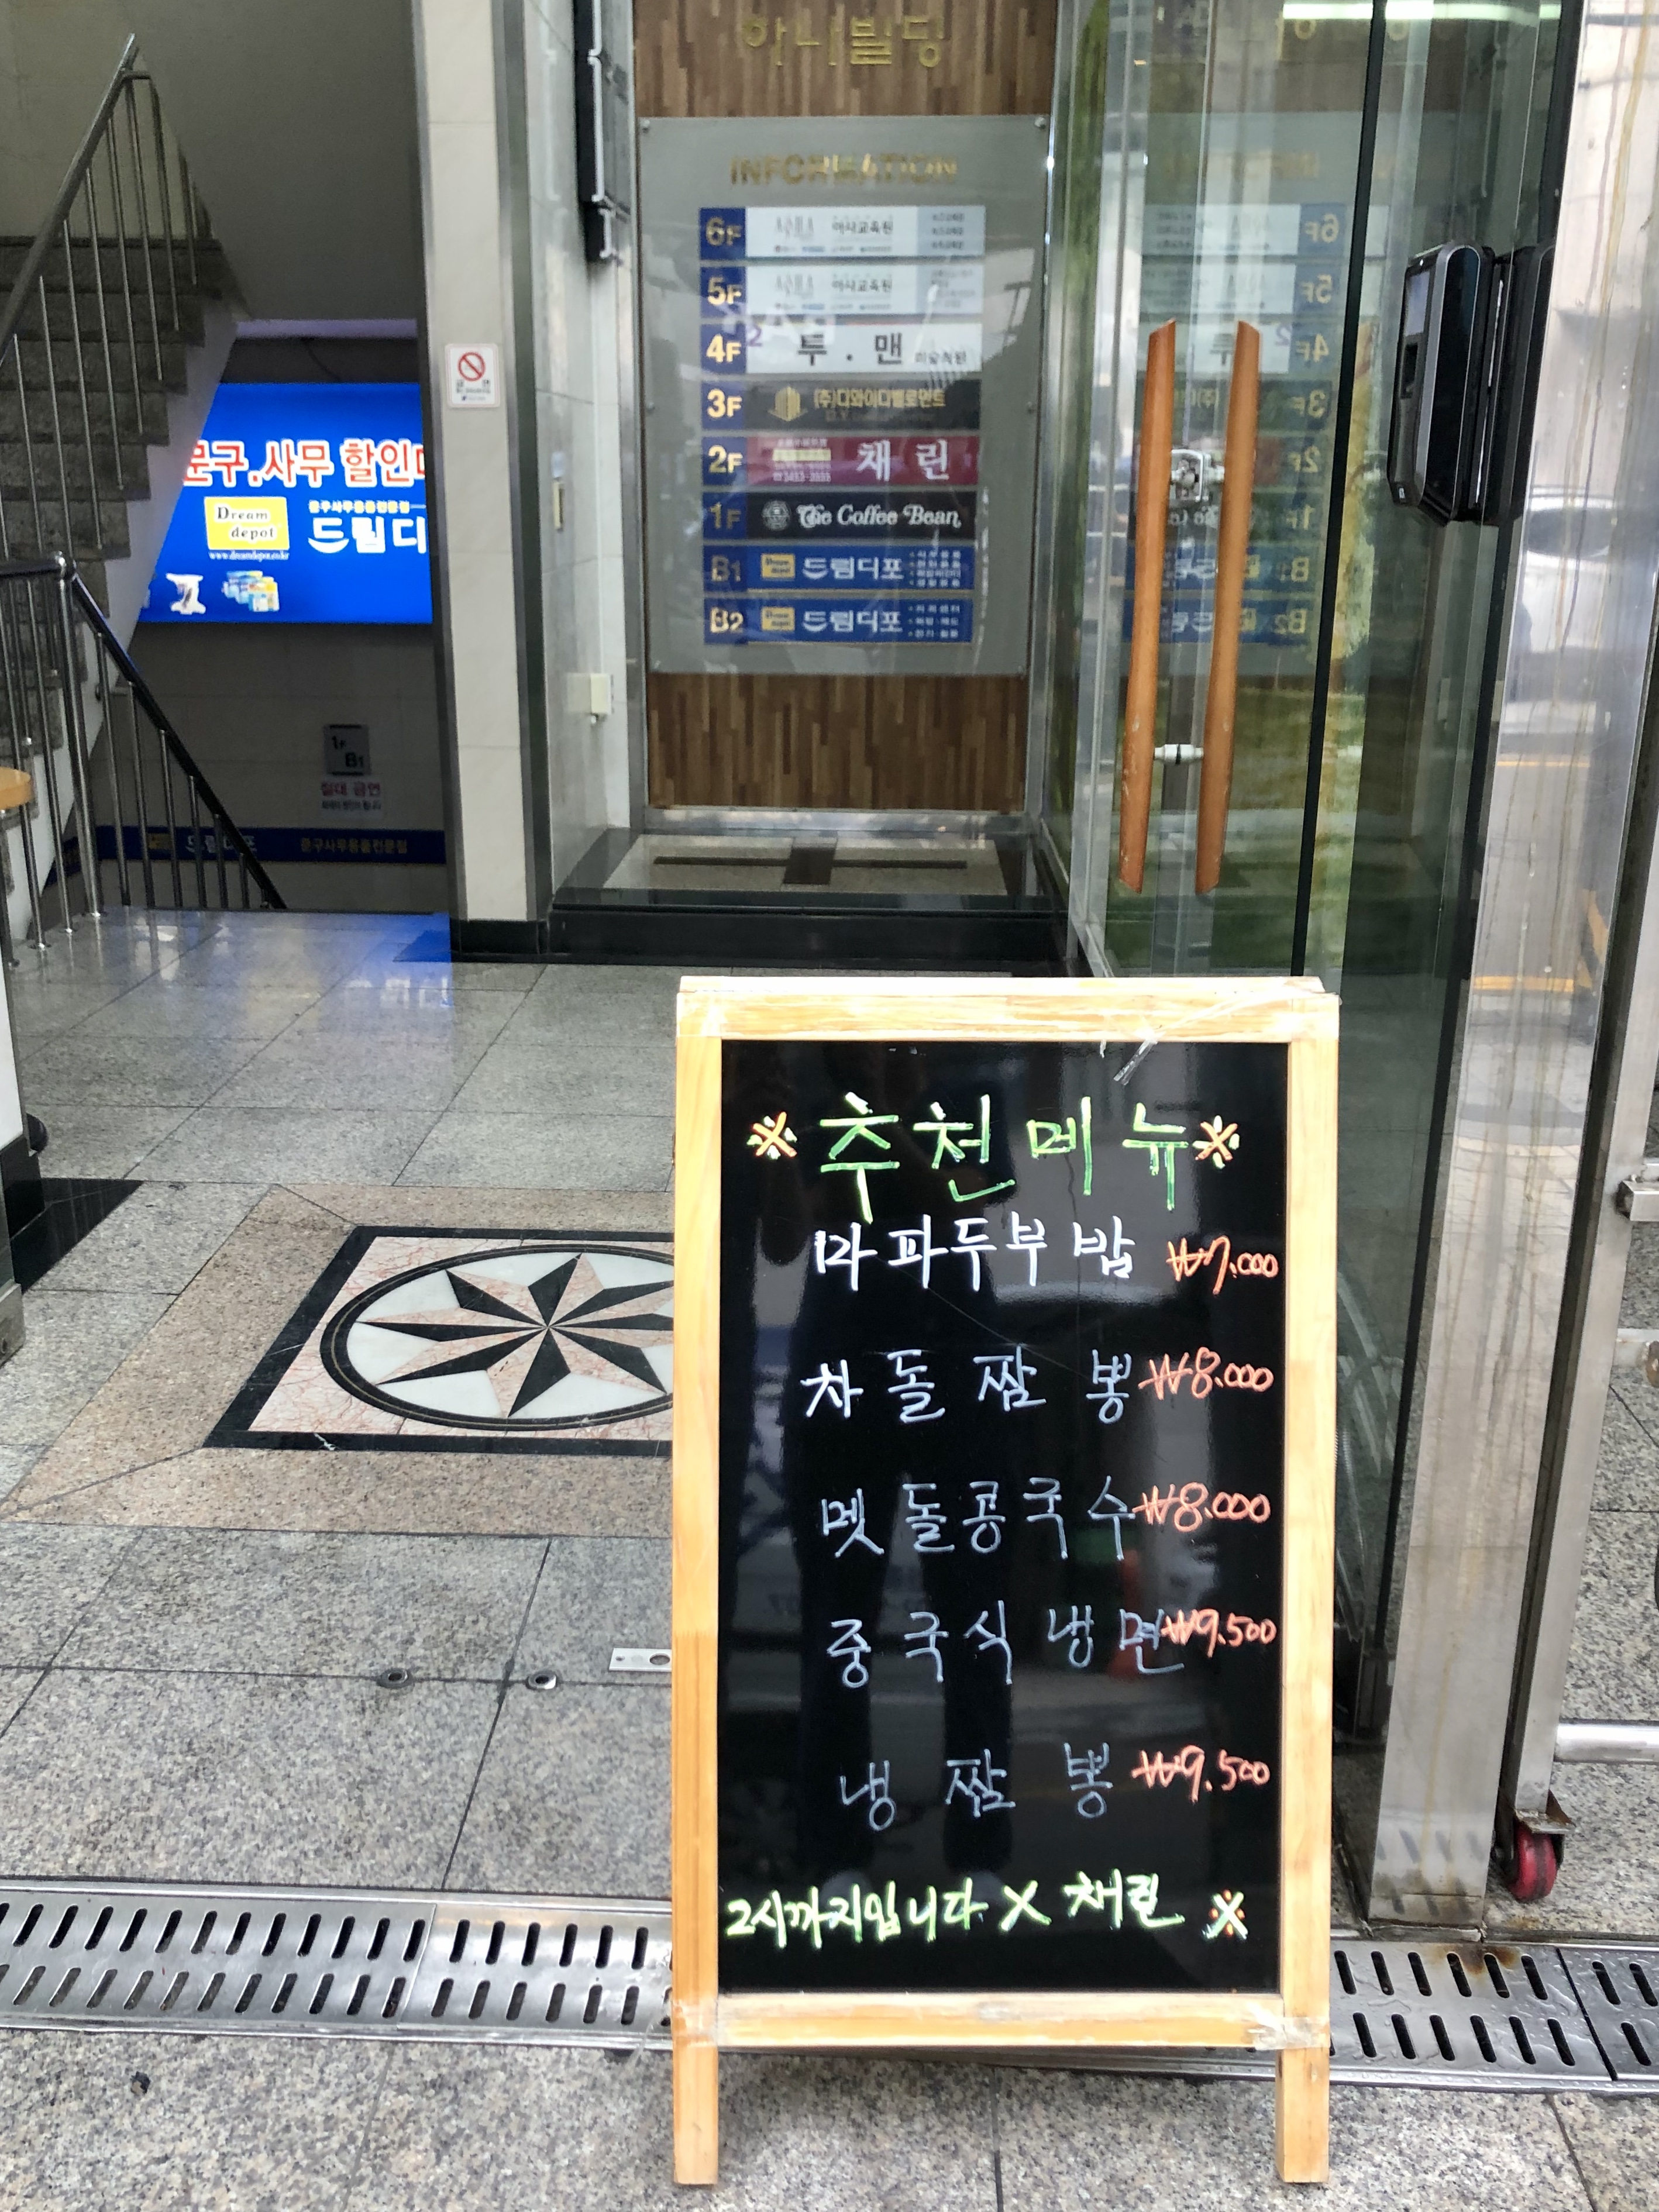 하나빌딩
INFORMATION
6F 아라교육원
5F 아라교육원
4F 투.맨
3F (주)디와이디벨로먼트
2F 채린
1F The Coffee Bean
B1 Dream depot 드림디포
B2 Dream depot 드림디포
문구.사무 할인
Dream depot
www.dreamdepot.co.kr
드림디
1F
B1
절대 금연
드림디포 문구사무용품전문점
※추천메뉴※
마파두부밥 ₩7.000
차돌짬뽕 ₩8.000
멧돌콩국수 ₩8.000
중국식냉면 ₩9.500
냉짬뽕 ₩9.500
2시까지입니다 X 채린 ※